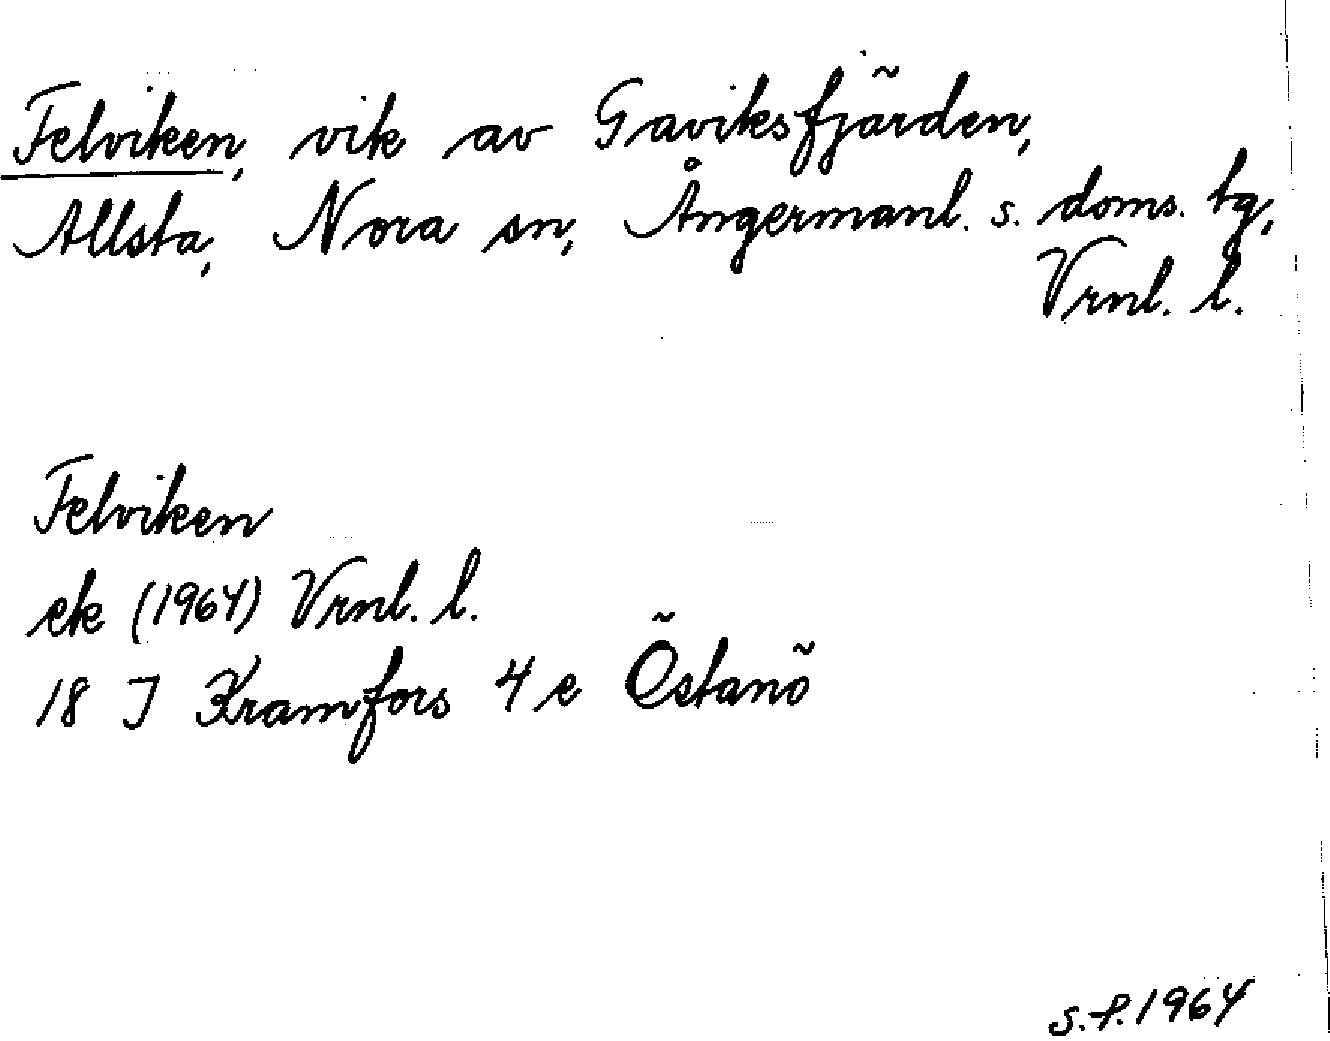 Felviken, vik av Gaviksfjärden,
Allsta, Nora sn, Ångermanl. s. doms. tg,
Vrnl. l.
Felviken
ek (1964) Vrnl. l.
18 J Kramfors 4 e Östanö
s.f. 1964